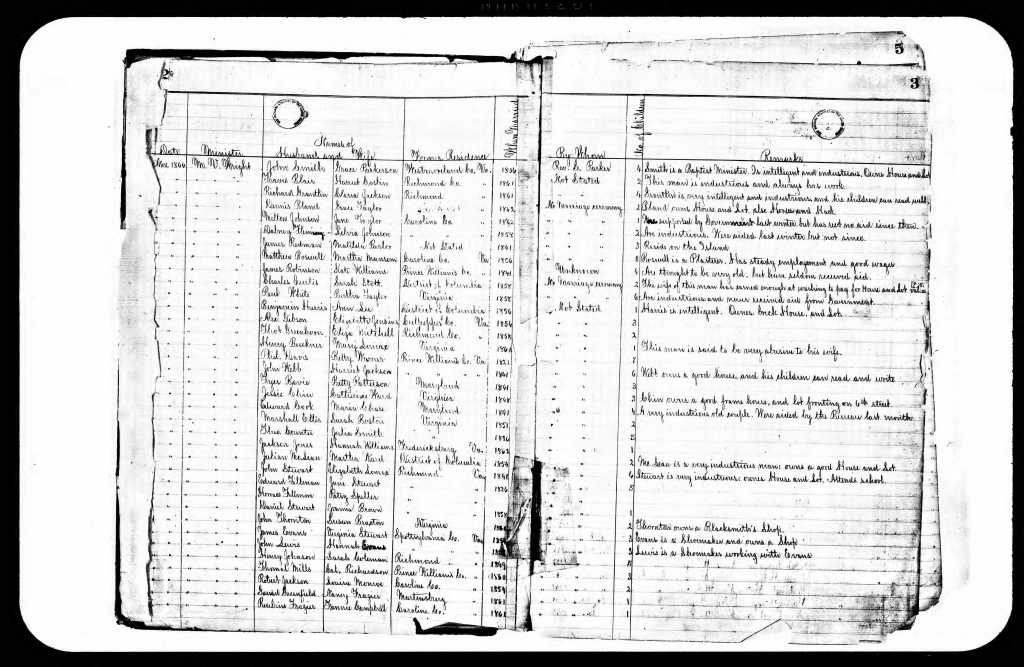 5
2
3
Names of
Date Minister Husband and Wife Former Residence When Married By Whom No of Children Remarks
Nov. 1866 Wm. V. Wright John Smith Grace Parkerson Westmoreland Co. Va. 1856 Rev. G. Parker 4 Smith is a Baptist Minister. Is intelligent and industrious, Owns House and Lot
Harriet Richmond Co. 1861 Not Stated 2 This man is industrious and always has work.
Richard Grandtin Clara Jackson Richmond 1861 4 is very intelligent and industrious and his children can read well.
Dennis Bland Grace Taylor 1863 No Marriage ceremony 2 Bland owns House and Lot, also Horses and Hack
Walker Johnson Jane Taylor Caroline Co. 1 Was supported by Government last winter but has rect no aid since then.
Dabney Silvia Johnson 1854 Are industrious. Were aided last winter but not since.
James Redman Matilda Parlor Not Stated 1861 3 Reside on the Island
Matthew Boswell Martha Monson Caroline Co. Va 1856 Boswell is a Plasterer. Has steady employment and good wages
James Robinson Kate Williams Prince William's Co. 1841 Unknown 4 Are thought to be very old but have seldom received aid.
Charles Curtis Sarah Stott District of Columbia 1858 No Marriage ceremony 2 The wife of this man has earned enough at washing to pay for House and Lot
Paul White Bertha Taylor Virginia 1858 6 Are industrious and never received aid from Government.
Benjamin Harris Ann Lee District of Columbia 1856 Not Stated 1 Harris is intelligent. Owns brick House, and Lot.
Alex Gibson Elizabeth Jenkins Culpepper Co. Va 1856 3
Thos Greenhorn Eliza Mitchell Richmond Co. 1858 2
Henry Buckner Mary Lomax Virginia 1 This man is said to be very abusive to his wife.
Phil. Davis Betty Warner Prince William's Co. Va. 1821 7
John Webb Harriet Jackson 6 Webb owns a good house and his children can read and write.
Betty Patterson Maryland 1841 3
Jessie Chinn Catherine Ward Virginia 1848 3 Chinn owns a good frame house, and lot fronting on 6th street.
Edward Cook Maria Chase Maryland 1841 4 A very industrious old couple. Were aided by the Bureau last month.
Marshall Ellis Sarah Virginia 1851 2
Julia Smith 1836 5
Jackson Jones Hannah Williams Fredericksburg Va. 1862
Julian McLean Martha Ward District of Columbia 1854 2 Mc Lean is a very industrious man: owns a good House and Lot.
John Stewart Elizabeth Lomax Richmond Va 1848 6 Stewart is very industrious: owns House and Lot. Attends school.
Edward Tillman Jane Stewart 5
Thomas Tillmon Patsy Speller
Daniel Stewart Joanna Brown 1858 1
John Thornton Susan Braxton Virginia 2 Thornton owns a Blacksmith's Shop
James Evans Virginia Stewart Spottsylvania Co. Va 2 Evans is a Shoemaker and owns a Shop
John Lewis Hannah Evans 3 Lewis is a Shoemaker working with Evans
Henry Johnson Sarah Coleman Richmond 1849
Thomas Mills Cat. Richardson Prince William's Co. 3
Robert Jackson Louisa Monroe Caroline Co. 1854 2
Daniel Greenfield Nancy Frazier Martinsburg 1861 1
Reubin Frazier Fannie Campbell Caroline Co. 1861 1